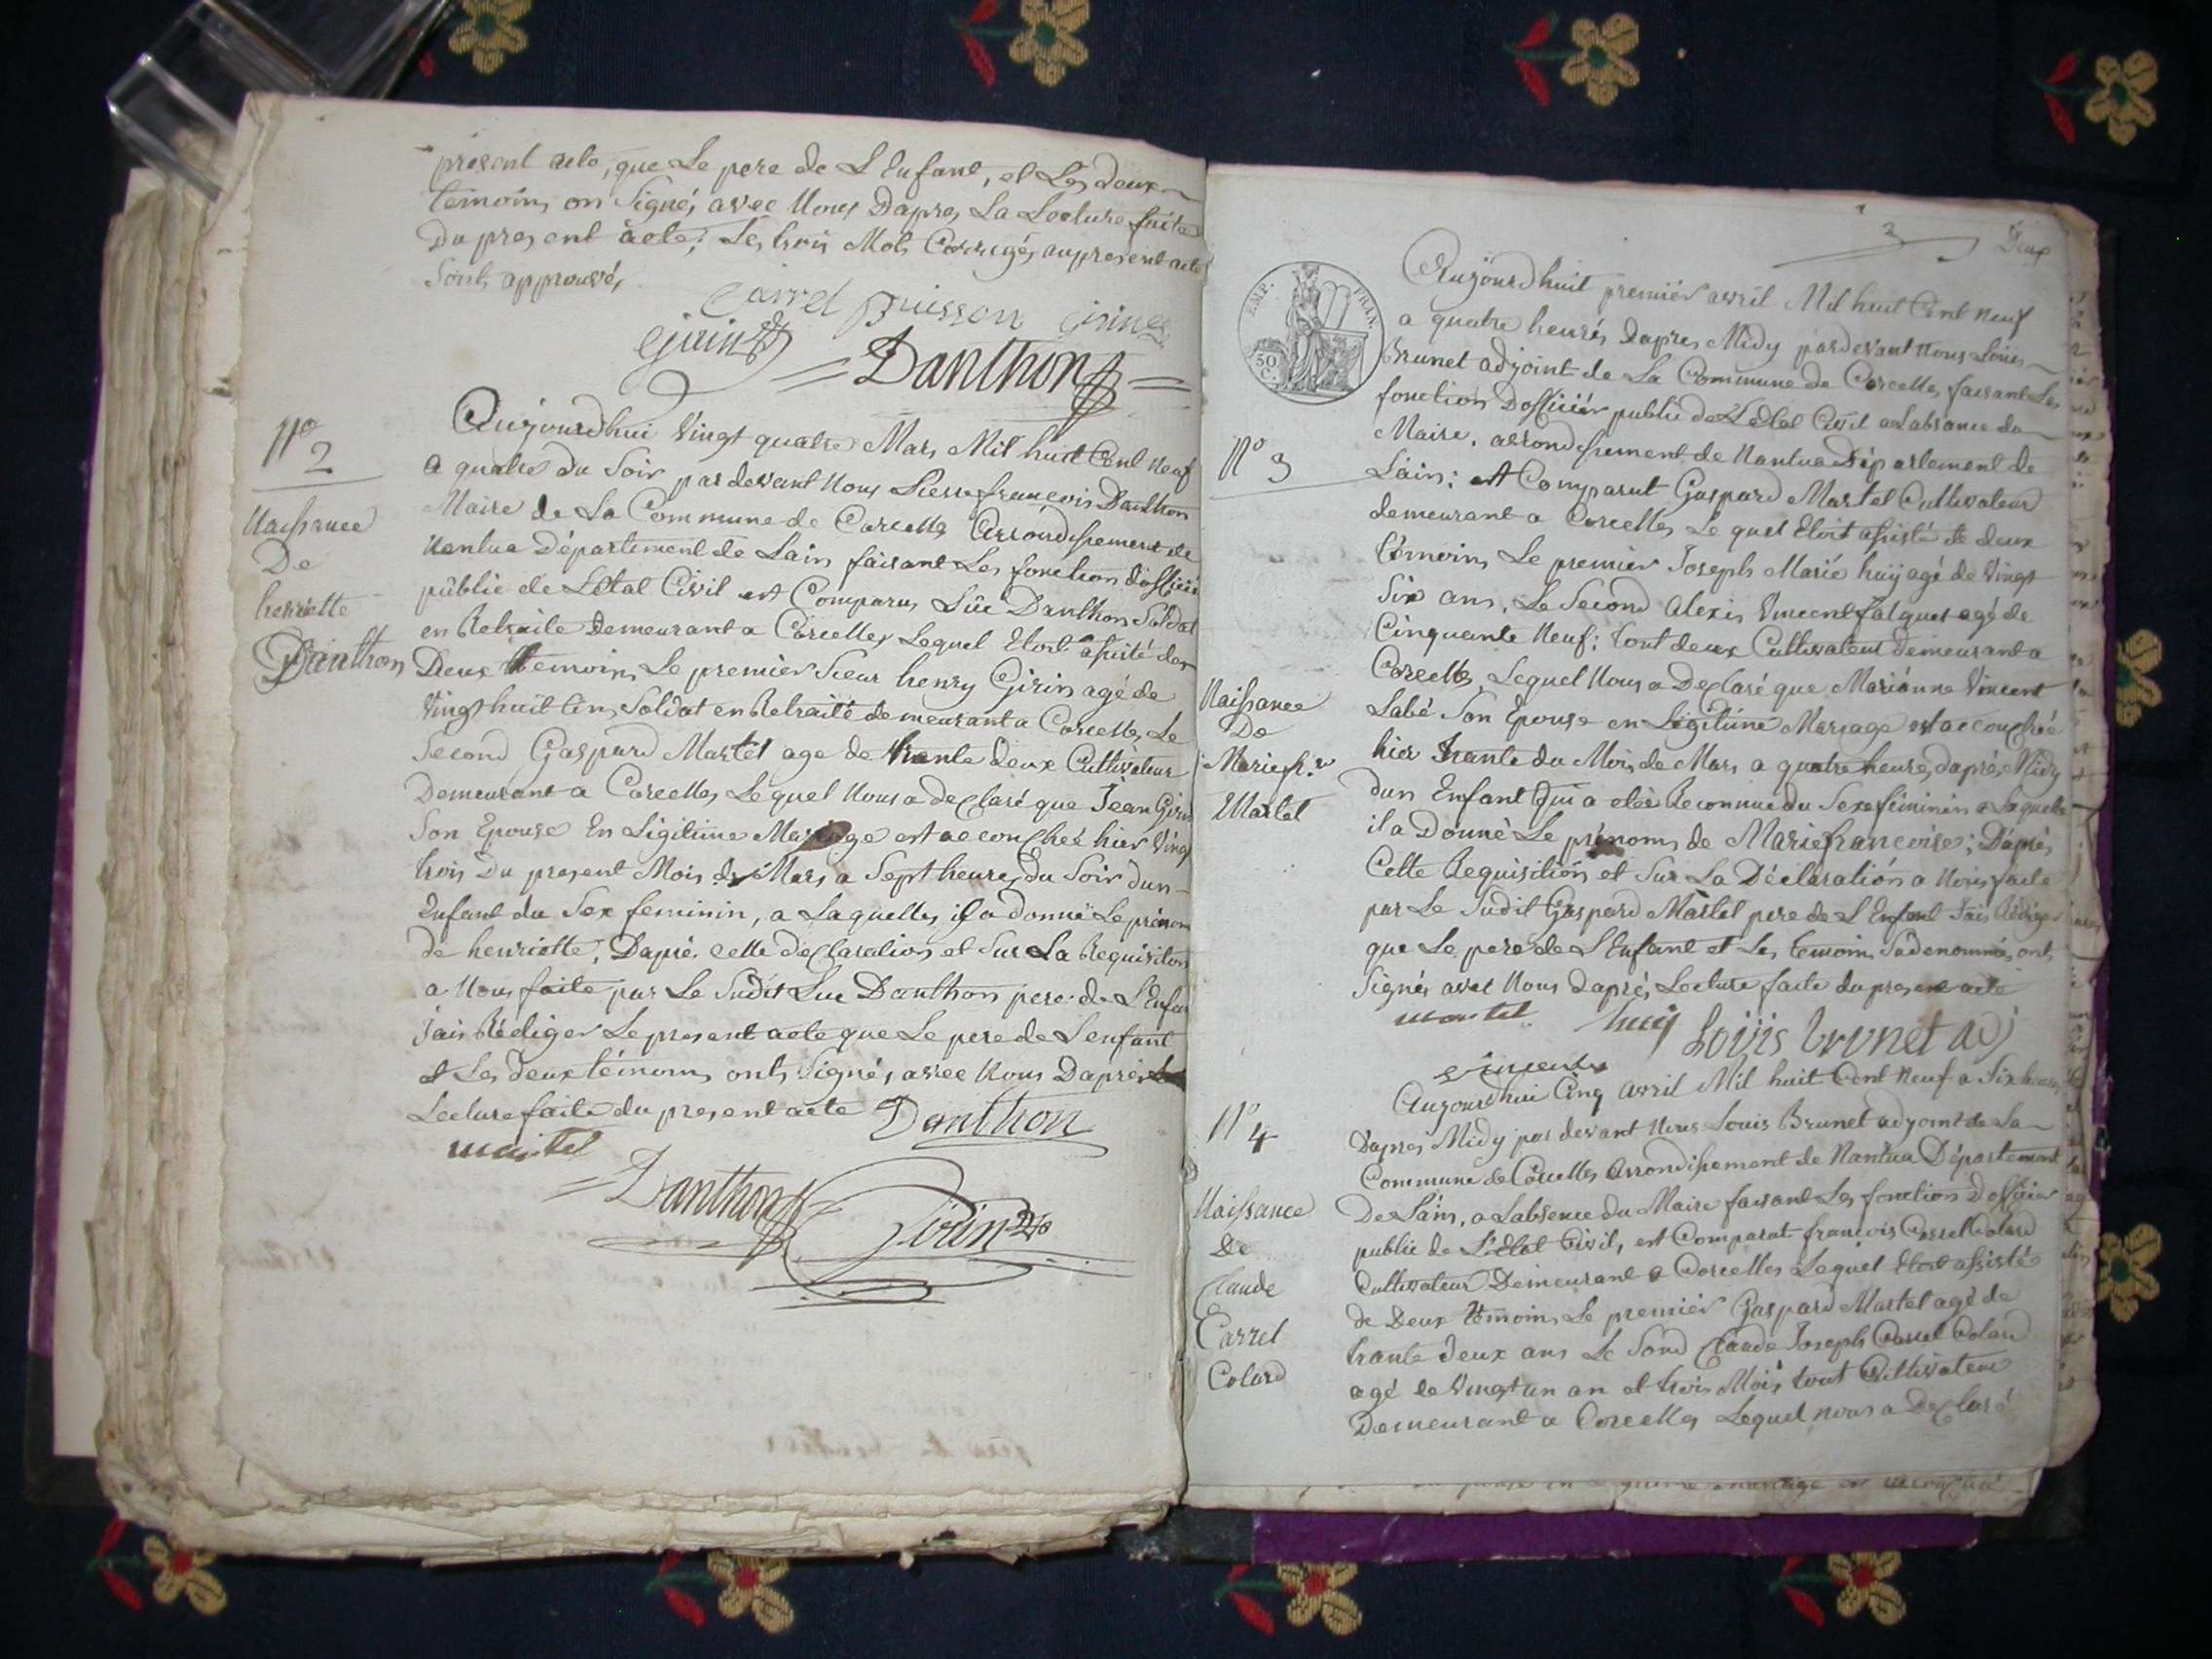 present acte, que Le pere de L Enfant, et Les deux
temoins on Signés avec Nous Dapres La Lecture faite
Du present acte; Les trois Mots Corrigés au present acte
Sonts approuvés
Carrel Buisson Girin
Girin
Danthon
Nº 2
Naissance
De
henriette
Danthon
Aujourdhui Vingt quatre Mars Mil huit Cent Neuf
a quatre du Soir par devant Nous Pierre francois Danthon
Maire de La Commune de Corcelles Arrondissement de
Nantua Département de Lain faisant Les fonction dofficier
public de Létat Civil est Comparus Luc Danthon Soldat
en Retraite Demeurant a Corcelles Lequel Etoit assisté des
Deux temoins Le premier Sieur henry Girin agé de
Vingt huit ans, Soldat en Retraite demeurant a Corcelles, Le
Second Gaspard Martel age de trente deux Cultivateur
Demeurant a Corcelles Lequel Nous a declaré que Jean Girin
Son Epouse En Légitime Mariage est accouchée hier Vingt
trois Du present Mois de Mars a Sept heures du Soir dun
Enfant du Sex feminin, a Laquelles il a donné Le prénom
de henriette, Dapré cette declaration et Sur La Requisition
a Nous faite par Le Sudit Luc Danthon pere de L Enfant
Jais Rédiger Le present acte que Le pere de Lenfant
et Les deux témoins onts Signés avec Nous Dapré La
Lecture faite du present acte Danthon
martel
Danthon Girin
2 Deux
EMP. FRAN.
50 C.
Aujourdhuit premiér avril Mil huit Cent Neuf
a quatre heurés Dapres Midy pardevant Nous Louis
Brunet adjoint de La Commune de Corcelles faisant Les
fonction Dofficiér public de LEtat Civil a Labsance du
Maire, arrondissement de Nantua Département de
Nº 3
Lain; est Comparut Gaspard Martel Cultivateur
demeurant a Corcelles Le quel Etoit assisté de deux
témoins Le premier Joseph Marié huÿ agé de Vingt
Six ans, Le Second Alexis Vincent falquet agé de
Cinquante Neuf; tout deux Cultivateur demeurant a
Corcelles, Lequel Nous a Declaré que Marianne Vincent
Naissance
De
Marie fr.se
Martel
Labé Son Epouse en Légitime Mariage est accouchée
hier trante du Mois de Mars a quatre heures dapré Midy
dun Enfant qui a etée Reconnue du Sexe féminin a Laquelle
il a Donné Le prénoms de Marie francoise; Dapré
Cette Requisition et Sur La Déclaration a Nous faite
par Le Sudit Gaspard Martel pere de L Enfant Jais Rédiger
que Le pere de L Enfant et Les temoins Sudenommés onts
Signés avec Nous dapré Lecture faite du present acte
martel huij Loüis brvnet adj
vincent
Nº 4
Aujourdhui Cinq avril Mil huit Cent Neuf a Six heures
Dapres Midy par devant Nous Louis Brunet adjoint de La
Commune de Corcelles Arrondissement de Nantua Département
Naissance
de
Claude
Carrel
Colard
De Lain, a Labsence du Maire faisant Les fonction Dofficier
public de LEtat Civil, est Comparut francois Carrel Colard
Cultivateur Demeurant a Corcelles Lequel Etoit assisté
de Deux témoins Le premiér Gaspard Martel agé de
trante deux ans Le Sond Claude Joseph Carrel Colard
agé de Vingt un an et trois Mois tout Cultivateur
Demeurant a Corcelles Lequel nous a Declaré